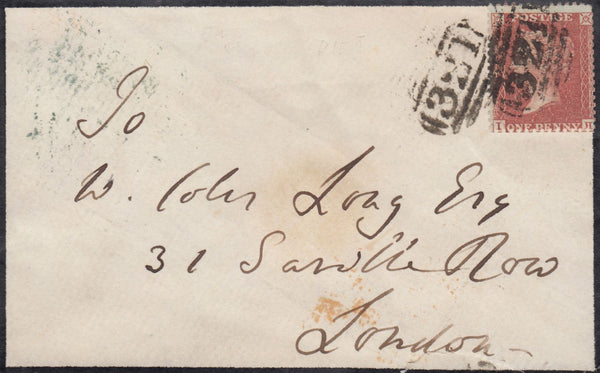 POSTAGE
321
321
ONE PENNY
To
W. Coles Long Esq
31 Saville Row
London